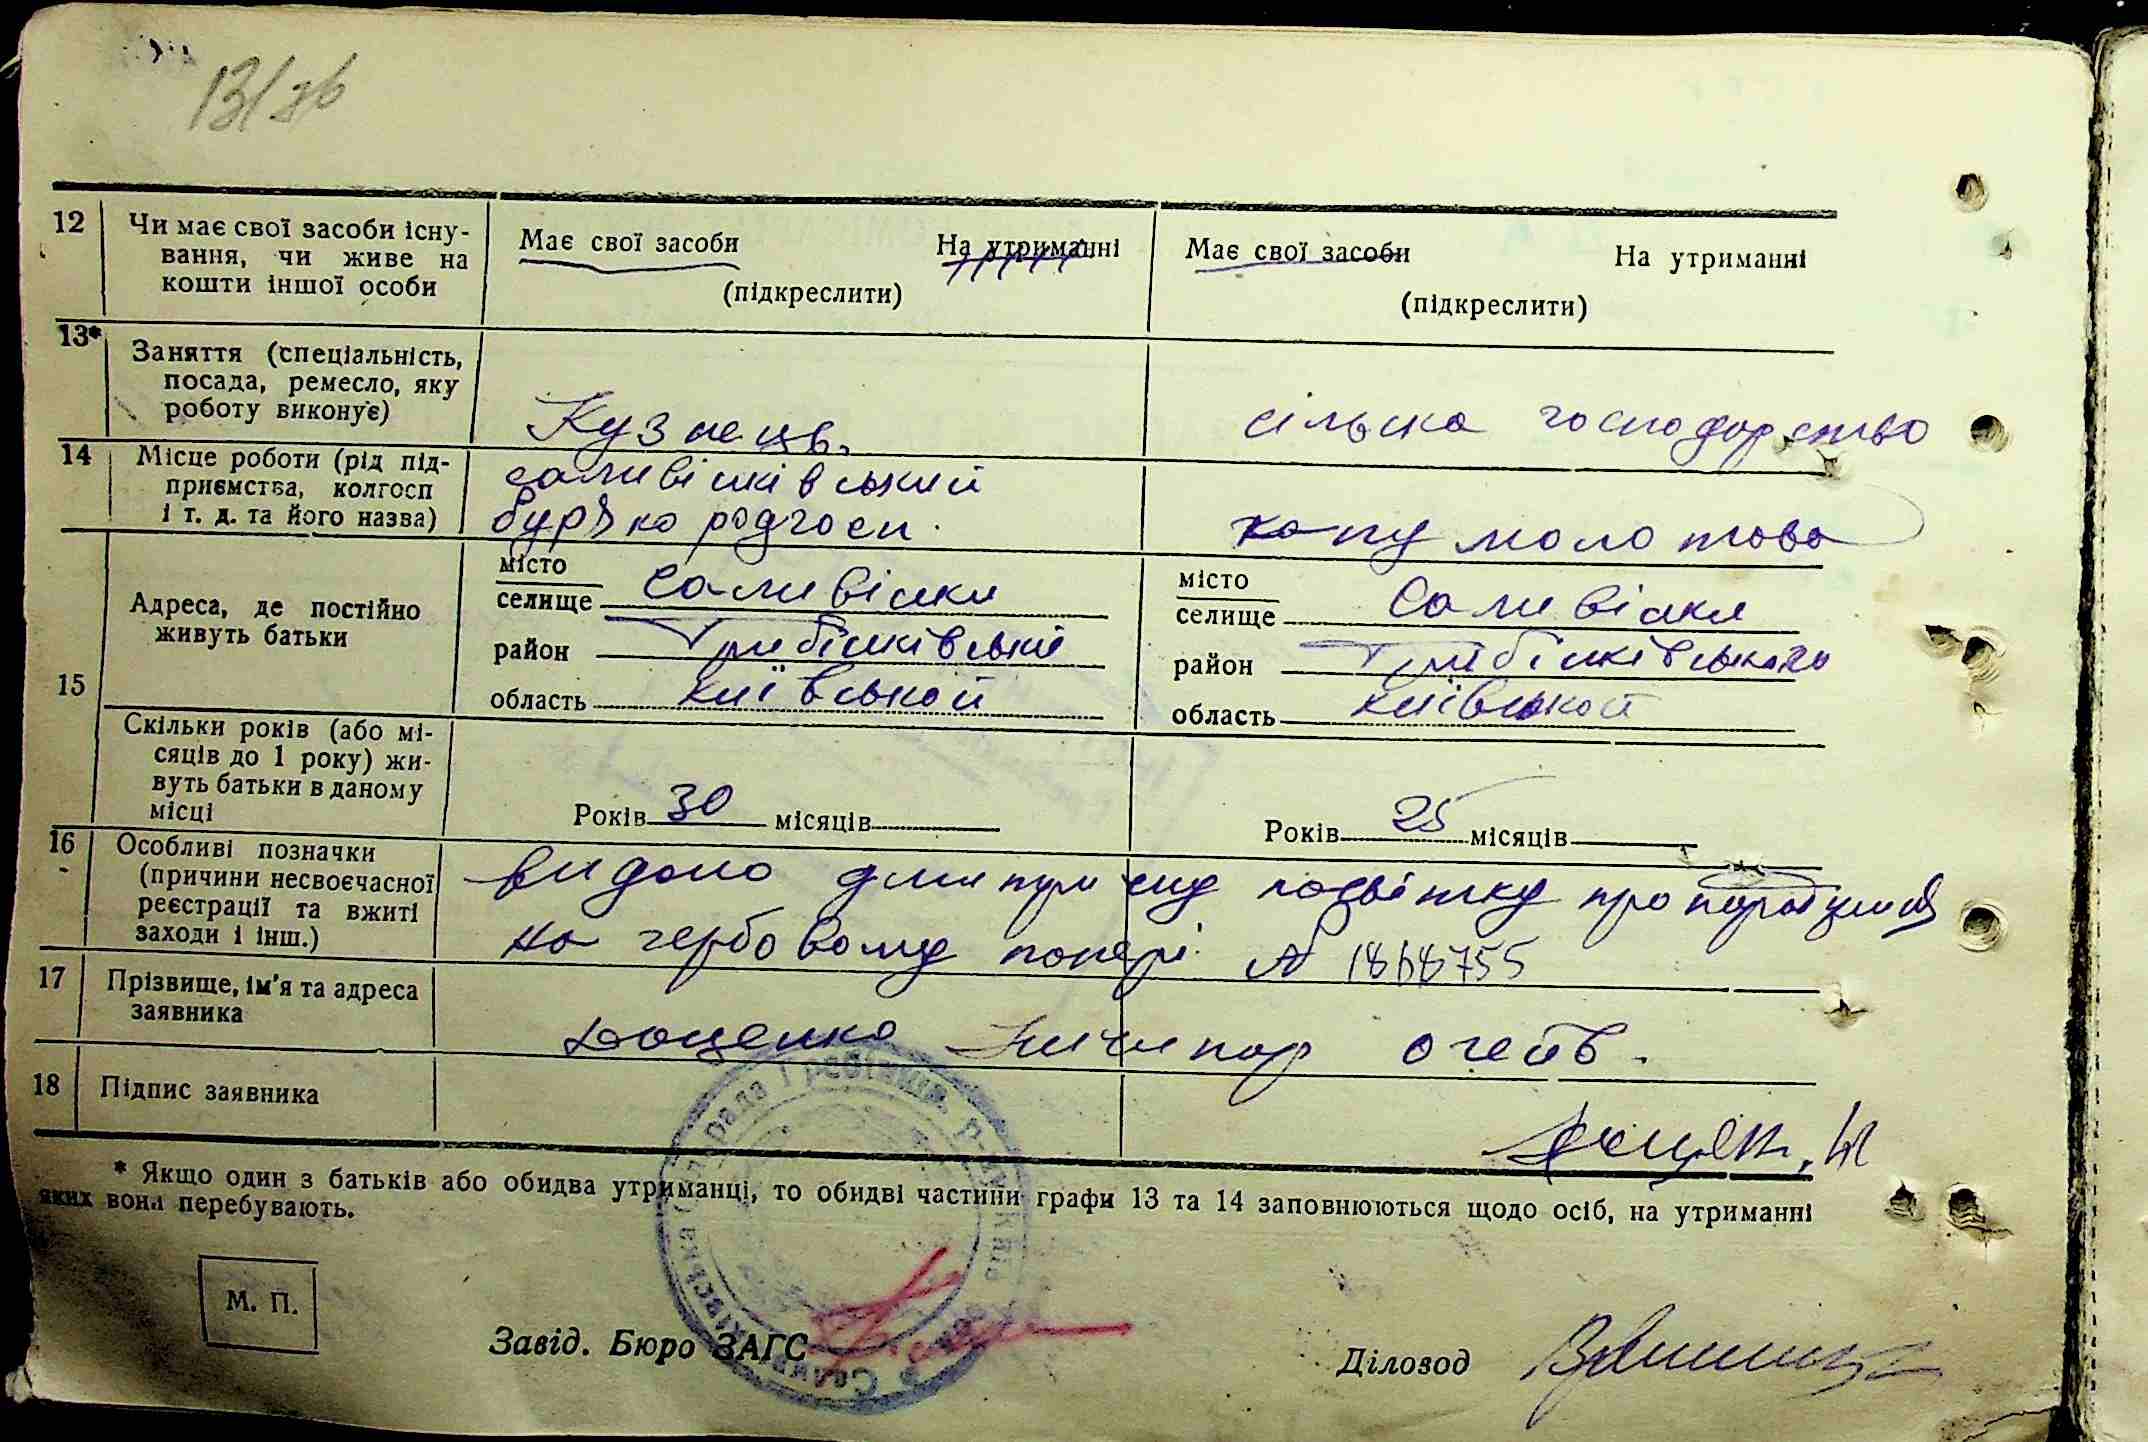 12 Чи має свої засоби існу-
вання, чи живе на
кошти іншої особи
Має свої засоби На утриманні
(підкреслити)
Має свої засоби На утриманні
(підкреслити)
13*
Заняття (спеціальність,
посада, ремесло, яку
роботу виконує)
Кузнець.
сільска господарство
14 Місце роботи (рід під-
приємства, колгосп
і т. д. та його назва)
саливінківський
буряко радгосп.
молотова
15
Адреса, де постійно
живуть батьки
місто
селище Саливінки
район Грибінківський
область київській
місто
селище Саливінки
район Грибінківського
область київській
Скільки років (або мі-
сяців до 1 року) жи-
вуть батьки в даному
місці
Років 30 місяців
Років 25 місяців
16 Особливі позначки
(причини несвоєчасної
реєстрації та вжиті
заходи і інш.)
видано про
на гербовому папері
17 Прізвище, ім'я та адреса
заявника
Доценко Ничипор
18 Підпис заявника
* Якщо один з батьків або обидва утриманці, то обидві частини графи 13 та 14 заповнюються щодо осіб, на утриманні
яких вони перебувають.
М. П.
Завід. Бюро ЗАГС
Діловод